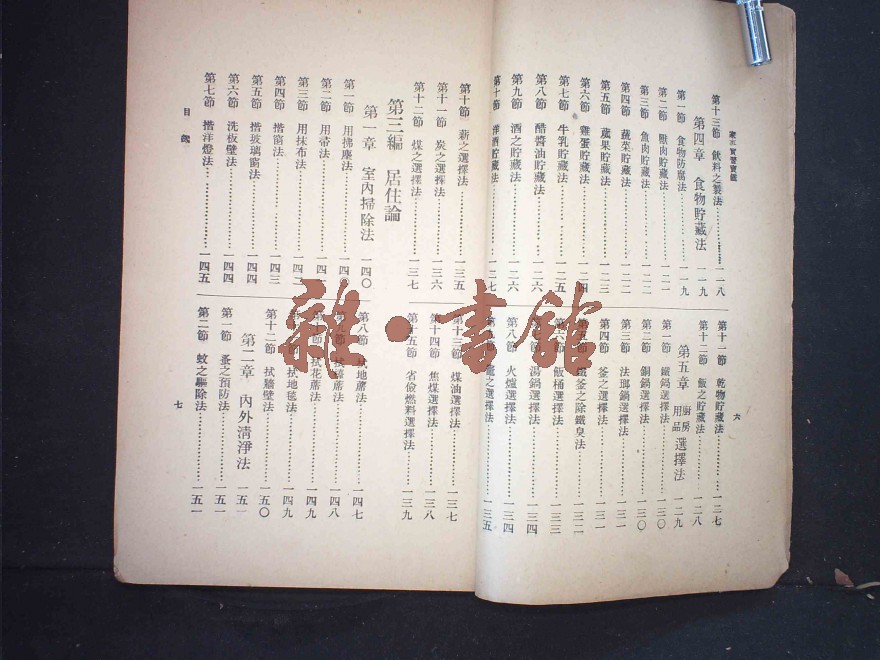 家事實習寶鑑
第十三節 飲料之製法 一一八
第四章 食物貯藏法 一一九
第一節 食物防腐法 一一九
第二節 獸肉貯藏法 一二一
第三節 魚肉貯藏法 一二二
第四節 蔬菜貯藏法 一二二
第五節 蔬果貯藏法 一二三
第六節 雞蛋貯藏法 一二四
第七節 牛乳貯藏法 一二五
第八節 醋醬油貯藏法 一二六
第九節 酒之貯藏法 一二六
第十節 洋酒貯藏法 一二七
第十一節 乾物貯藏法 一二七
第十二節 飯之貯藏法 一二八
第五章 廚房用品選擇法 一二九
第一節 鐵鍋選擇法 一三〇
第二節 銅鍋選擇法 一三〇
第三節 法瑯鍋選擇法 一三一
第四節 釜之選擇法 一三一
第五節 鐵釜之除鐵臭法 一三二
第六節 飯桶選擇法 一三三
第七節 湯鍋選擇法 一三四
第八節 火爐選擇法 一三四
第九節 竈之選擇法 一三五
六
第十節 薪之選擇法 一三五
第十一節 炭之選擇法 一三六
第十二節 煤之選擇法 一三七
第十三節 煤油選擇法 一三七
第十四節 焦煤選擇法 一三八
第十五節 省儉燃料選擇法 一三九
第三編 居住論
第一章 室內掃除法 一四〇
第一節 用拂塵法 一四〇
第二節 用帚法 一四一
第三節 用抹布法 一四二
第四節 揩窗法 一四三
第五節 揩玻璃窗法 一四四
第六節 洗板壁法 一四四
第七節 揩洋燈法 一四五
第八節 拭地蓆法 一四七
第九節 拭籐蓆法 一四八
第十節 拭花蓆法 一四九
第十一節 拭地毯法 一四九
第十二節 拭牆壁法 一五〇
第二章 內外清淨法 一五一
第一節 蚤之預防法 一五一
第二節 蚊之驅除法 一五一
目 錄
七
雜·書館